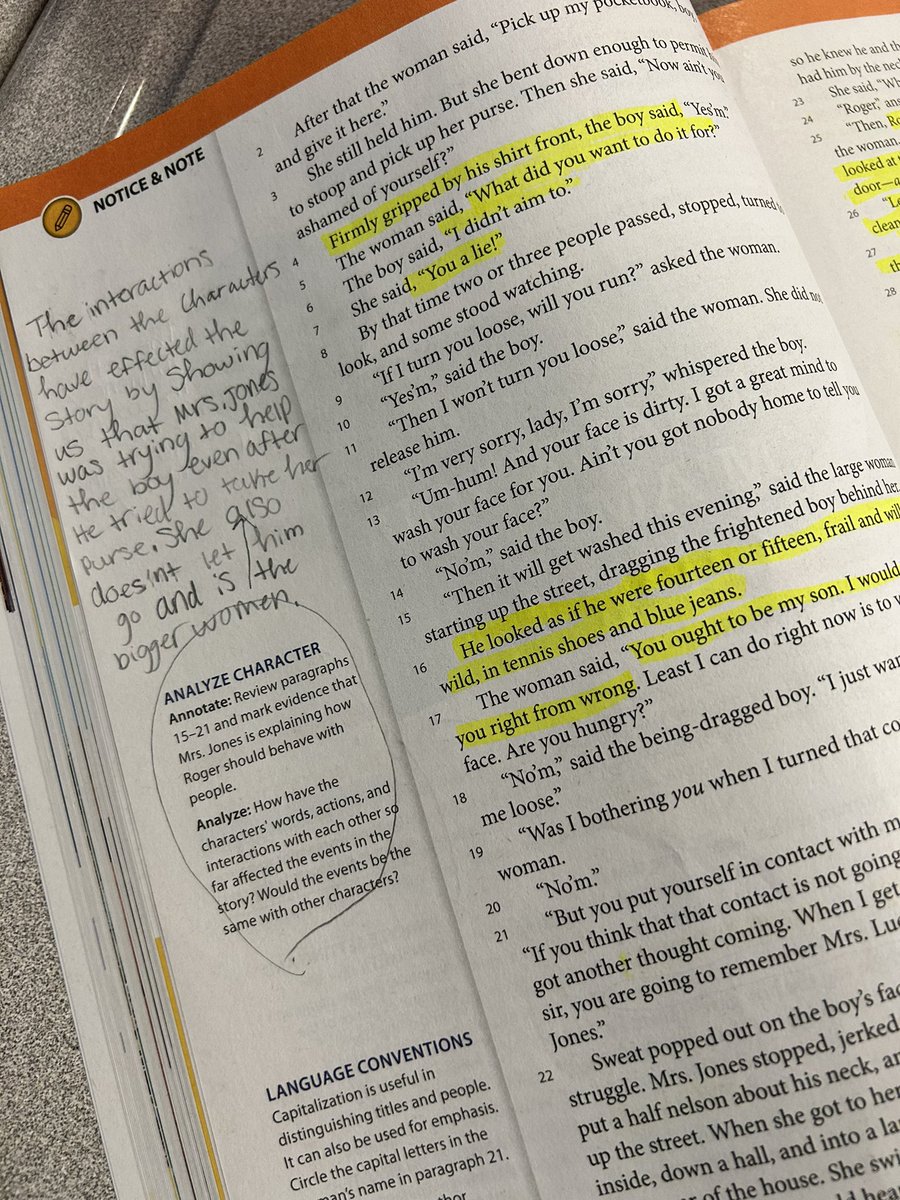 NOTICE & NOTE
The interactions
between the characters
have effected the
Story by Showing
us that Mrs. Jones
was trying to help
the boy even after
He tried to take her
purse. She also
doesint let him
go and is the
bigger women.
ANALYZE CHARACTER
Annotate: Review paragraphs
15–21 and mark evidence that
Mrs. Jones is explaining how
Roger should behave with
people.
Analyze: How have the
characters' words, actions, and
interactions with each other so
far affected the events in the
story? Would the events be the
same with other characters?
LANGUAGE CONVENTIONS
Capitalization is useful in
distinguishing titles and people.
It can also be used for emphasis.
Circle the capital letters in the
name in paragraph 21.
2 After that the woman said, “Pick up my pocketbook, boy
and give it here.”
3 She still held him. But she bent down enough to permit
to stoop and pick up her purse. Then she said, “Now ain’t you
ashamed of yourself?”
4 Firmly gripped by his shirt front, the boy said, “Yes’m.”
5 The woman said, “What did you want to do it for?”
6 The boy said, “I didn’t aim to.”
7 She said, “You a lie!”
8 By that time two or three people passed, stopped, turned to
look, and some stood watching.
9 “If I turn you loose, will you run?” asked the woman.
10 “Yes’m,” said the boy.
11 “Then I won’t turn you loose,” said the woman. She did not
release him.
12 “I’m very sorry, lady, I’m sorry,” whispered the boy.
13 “Um-hum! And your face is dirty. I got a great mind to
wash your face for you. Ain’t you got nobody home to tell you
to wash your face?”
14 “No’m,” said the boy.
15 “Then it will get washed this evening,” said the large woman
starting up the street, dragging the frightened boy behind her.
16 He looked as if he were fourteen or fifteen, frail and
wild, in tennis shoes and blue jeans.
17 The woman said, “You ought to be my son. I would
you right from wrong. Least I can do right now is to
face. Are you hungry?”
18 “No’m,” said the being-dragged boy. “I just
me loose.”
19 “Was I bothering you when I turned that
woman.
20 “No’m.”
21 “But you put yourself in contact with
“If you think that that contact is not going
got another thought coming. When I get
sir, you are going to remember Mrs.
Jones.”
22 Sweat popped out on the boy’s
struggle. Mrs. Jones stopped, jerked
put a half nelson about his neck,
up the street. When she got to her
inside, down a hall, and into a
of the house. She
so he knew he and
had him by the
23 She said,
24 “Roger,”
25 “Then,
the woman.
looked at
door—
26
27
28